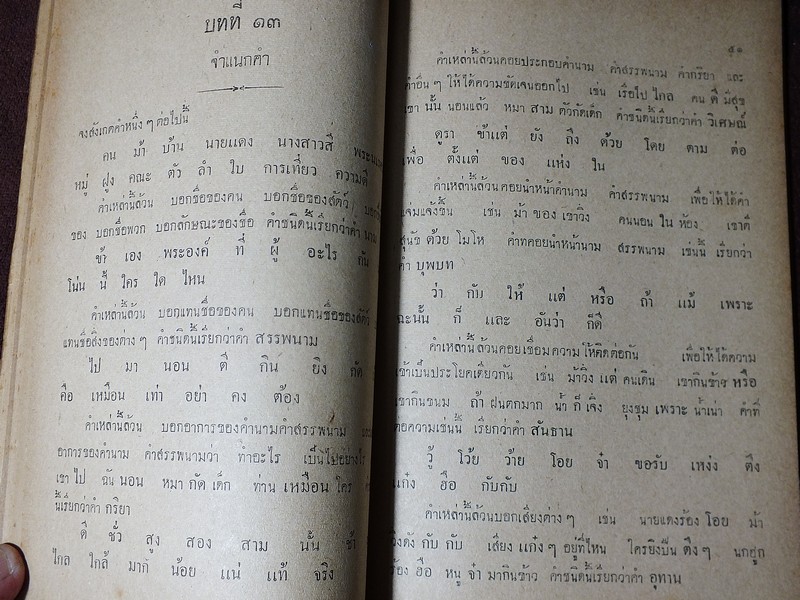 บทที่ ๑๓
จำแนกคำ
จงสังเกตคำหนึ่ง ๆ ต่อไปนี้
คน ม้า บ้าน นายแดง นางสาวสี
หมู่ ฝูง คณะ ตัว ลำ ใบ การเที่ยว ความดี
คำเหล่านี้ล้วน บอกชื่อของคน บอกชื่อของสัตว์
ของ บอกชื่อพวก บอกลักษณะของชื่อ คำชนิดนี้เรียกว่าคำ นาม
ข้า เอง พระองค์ ที่ ผู้ อะไร กัน
โน่น นี้ ใคร ใด ไหน
คำเหล่านี้ล้วน บอกแทนชื่อของคน บอกแทนชื่อของสัตว์
แทนชื่อสิ่งของต่าง ๆ คำชนิดนี้เรียกว่าคำ สรรพนาม
ไป มา นอน ตี กิน ยิง กัด
คือ เหมือน เท่า อย่า คง ต้อง
คำเหล่านี้ล้วน บอกอาการของคำนามคำสรรพนาม
อาการของคำนาม คำสรรพนามว่า ทำอะไร เป็นไปอย่างไร
เขา ไป ฉัน นอน หมา กัด เด็ก ท่าน เหมือน ใคร
นี้เรียกว่าคำ กริยา
ดี ชั่ว สูง สอง สาม นั้น ช้า
ไกล ใกล้ มาก น้อย แน่ แท้ จริง
๕๑
คำเหล่านี้ล้วนคอยประกอบคำนาม คำสรรพนาม คำกริยา และ
คำอื่น ๆ ให้ได้ความชัดเจนออกไป เช่น เรือไป ไกล คน ดี มีสุข
เขา นั้น นอนแล้ว หมา สาม ตัวกัดเด็ก คำชนิดนี้เรียกว่าคำ วิเศษณ์
ดูรา ข้าแต่ ยัง ถึง ด้วย โดย ตาม ต่อ
เพื่อ ตั้งแต่ ของ แห่ง ใน
คำเหล่านี้ล้วนคอยนำหน้าคำนาม คำสรรพนาม เพื่อให้ได้คำ
แจ่มแจ้งขึ้น เช่น ม้า ของ เขาวิ่ง คนนอน ใน ห้อง เขาตี
สุนัข ด้วย โมโห คำที่คอยนำหน้านาม สรรพนาม เช่นนี้ เรียกว่า
คำ บุพบท
ว่า กับ ให้ แต่ หรือ ถ้า แม้ เพราะ
ฉะนั้น ก็ และ อันว่า ก็ดี
คำเหล่านี้ล้วนคอยเชื่อมความให้ติดต่อกัน เพื่อให้ได้ความ
เข้าเป็นประโยคเดียวกัน เช่น ม้าวิ่ง แต่ คนเดิน เขากินข้าว หรือ
เขากินขนม ถ้า ฝนตกมาก น้ำ ก็ เจิ่ง ยุงชุม เพราะ น้ำเน่า คำที่
ต่อความเช่นนี้ เรียกว่าคำ สันธาน
วู้ โว้ย ว้าย โอย จ๋า ขอรับ เหง่ง ตึง
แก๋ง ฮือ กับกับ
คำเหล่านี้ล้วนบอกเสียงต่าง ๆ เช่น นายแดงร้อง โอย ม้า
วิ่งดัง กับ กับ เสียง แก๋ง ๆ อยู่ที่ไหน ใครยิงปืน ตึง ๆ นกฮูก
ร้อง ฮือ หนู จ๋า มากินข้าว คำชนิดนี้เรียกว่าคำ อุทาน